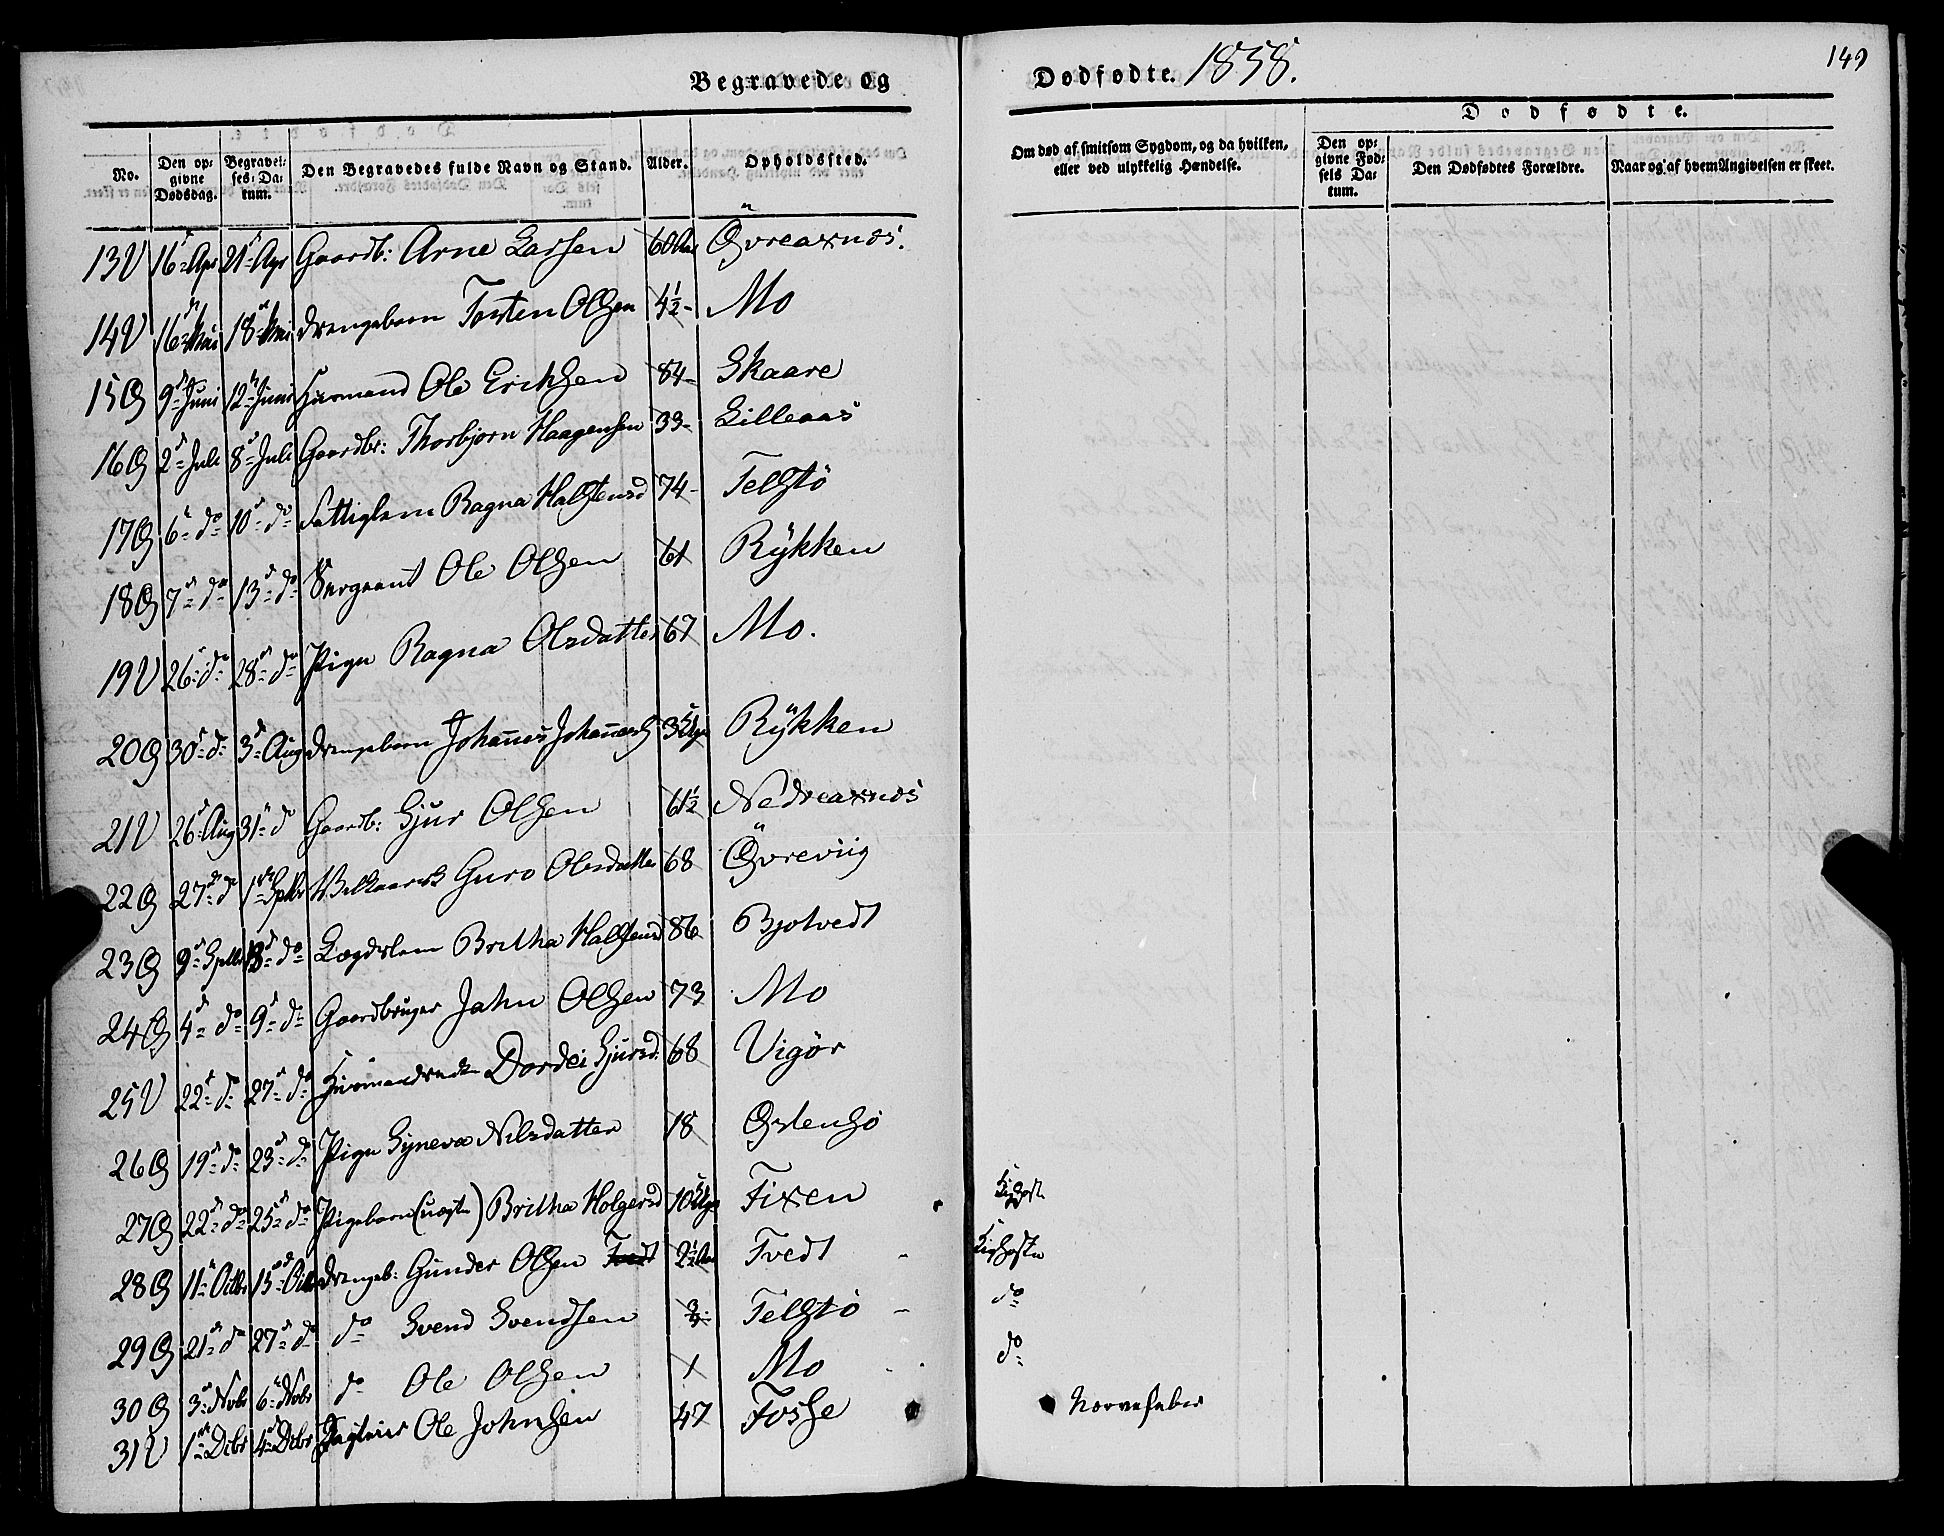 Begravede og
Dødfødte. 1838.
149
No.
Den opgivne Dødsdag.
Begravelses-Datum.
Den Begravedes fulde Navn og Stand.
Alder.
Opholdssted.
Om død af smitsom Sygdom, og da hvilken, eller ved ulykkelig Hændelse.
Dødfødte.
Den opgivne Fødsels Datum.
Den Dødfødtes Forældre.
Naar og af hvem Angivelsen er skeet.
13 V 16 Apr 21 Apr Gaardb: Arne Larsen 60 Aar Øvreaxnes.
14 V 16 Mai 18 Mai Drengebarn Torsten Olsen 4½ Mo
15 Ø 9 Juni 12 Juni Huusmand Ole Erichsen 84 Skaare
16 Ø 2 Juli 8 Juli Gaardbr: Thorbjørn Haagensen 33 Lilleaas
17 Ø 6 do 10 do Fattiglem Ragna Halstensd 74 Telstø
18 Ø 7 do 13 do Sergeant Ole Olsen 61 Rykken
19 V 26 do 28 do Pige Ragna Olsdatter 67 Mo.
20 Ø 30 do 3 Aug Drengebarn Johannes Johanness 3 Uger Rykken
21 V 26 Aug 31 do Gaardb: Sjur Olsen 61½ Nedreaxnes
22 Ø 27 do 1 Septbr Guro Olsdatter 68 Øvreviig
23 Ø 9 Septbr do Lægdslem Britha Halstensd 86 Bjotvedt
24 Ø 4 do 9 do Gaardbruger Jahn Olsen 73 Mo
25 V 22 do 27 do Dordei Sjursd. 68 Vigør
26 Ø 19 do 23 do Pige Syneva Nilsdatter 18 Østensø
27 Ø 22 do 25 do Pigebarn (uægte) Britha Holgersd 10 Uger Fixen
28 Ø 11 Octbr 15 Octbr Drengeb: Gunder Olsen Tvedt 2½ Aar Tvedt Kighoste
29 Ø 21 do 27 do do Svend Svendsen Telstø do
30 Ø 3 Novbr 6 Novbr do Ole Olsen 1 Mo do
31 V 1 Decbr 4 Decbr Ole Johnsen 47 Fosse Nervefeber